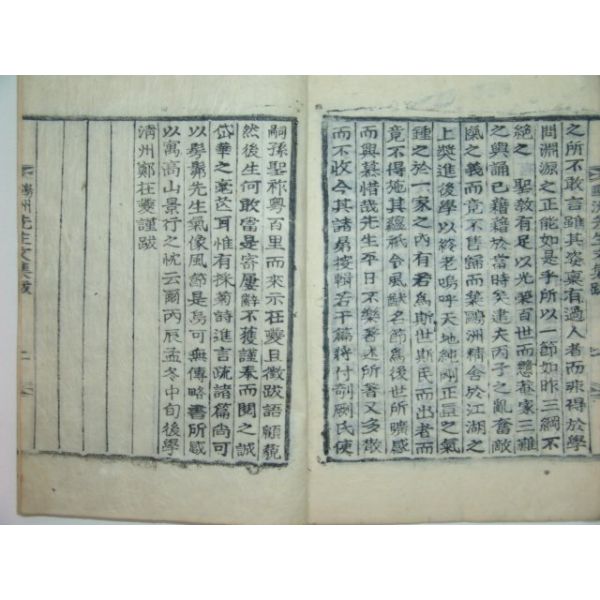 之所不敢言雖其姿稟有過人者而非得於學
問淵源之正能如是乎所以一節如昨三綱不
絶之 聖敎有足以光榮百世而戀恭家三難
之輿誦已藉藉於當時矣逮夫丙子之亂奮敵
愾之義而竟不售歸而築鷗洲精舍於江湖之
上奬進後學以終老嗚呼天地純剛正直之氣
鍾之於一家之內有君爲斯世斯民而出者而
竟不得施其蘊袛令風猷名節爲後世所曠感
而興慕惜哉先生平日不樂著述所著又多散
而不收今其諸昴搜輯若干篇將付剞劂氏使
嗣孫聖祚粤百里而來示在夔且徵跋語顧藐
然後生何敢當是寄屢辭不獲謹奉而閱之誠
岱華之毫芒耳惟有採菊詩進言疏諸篇尚可
以髣髴先生氣像風節是烏可無傳略書所感
以寓高山景行之忱云爾丙辰孟冬中旬後學
淸州鄭在夔謹跋
鷗洲先生文集跋